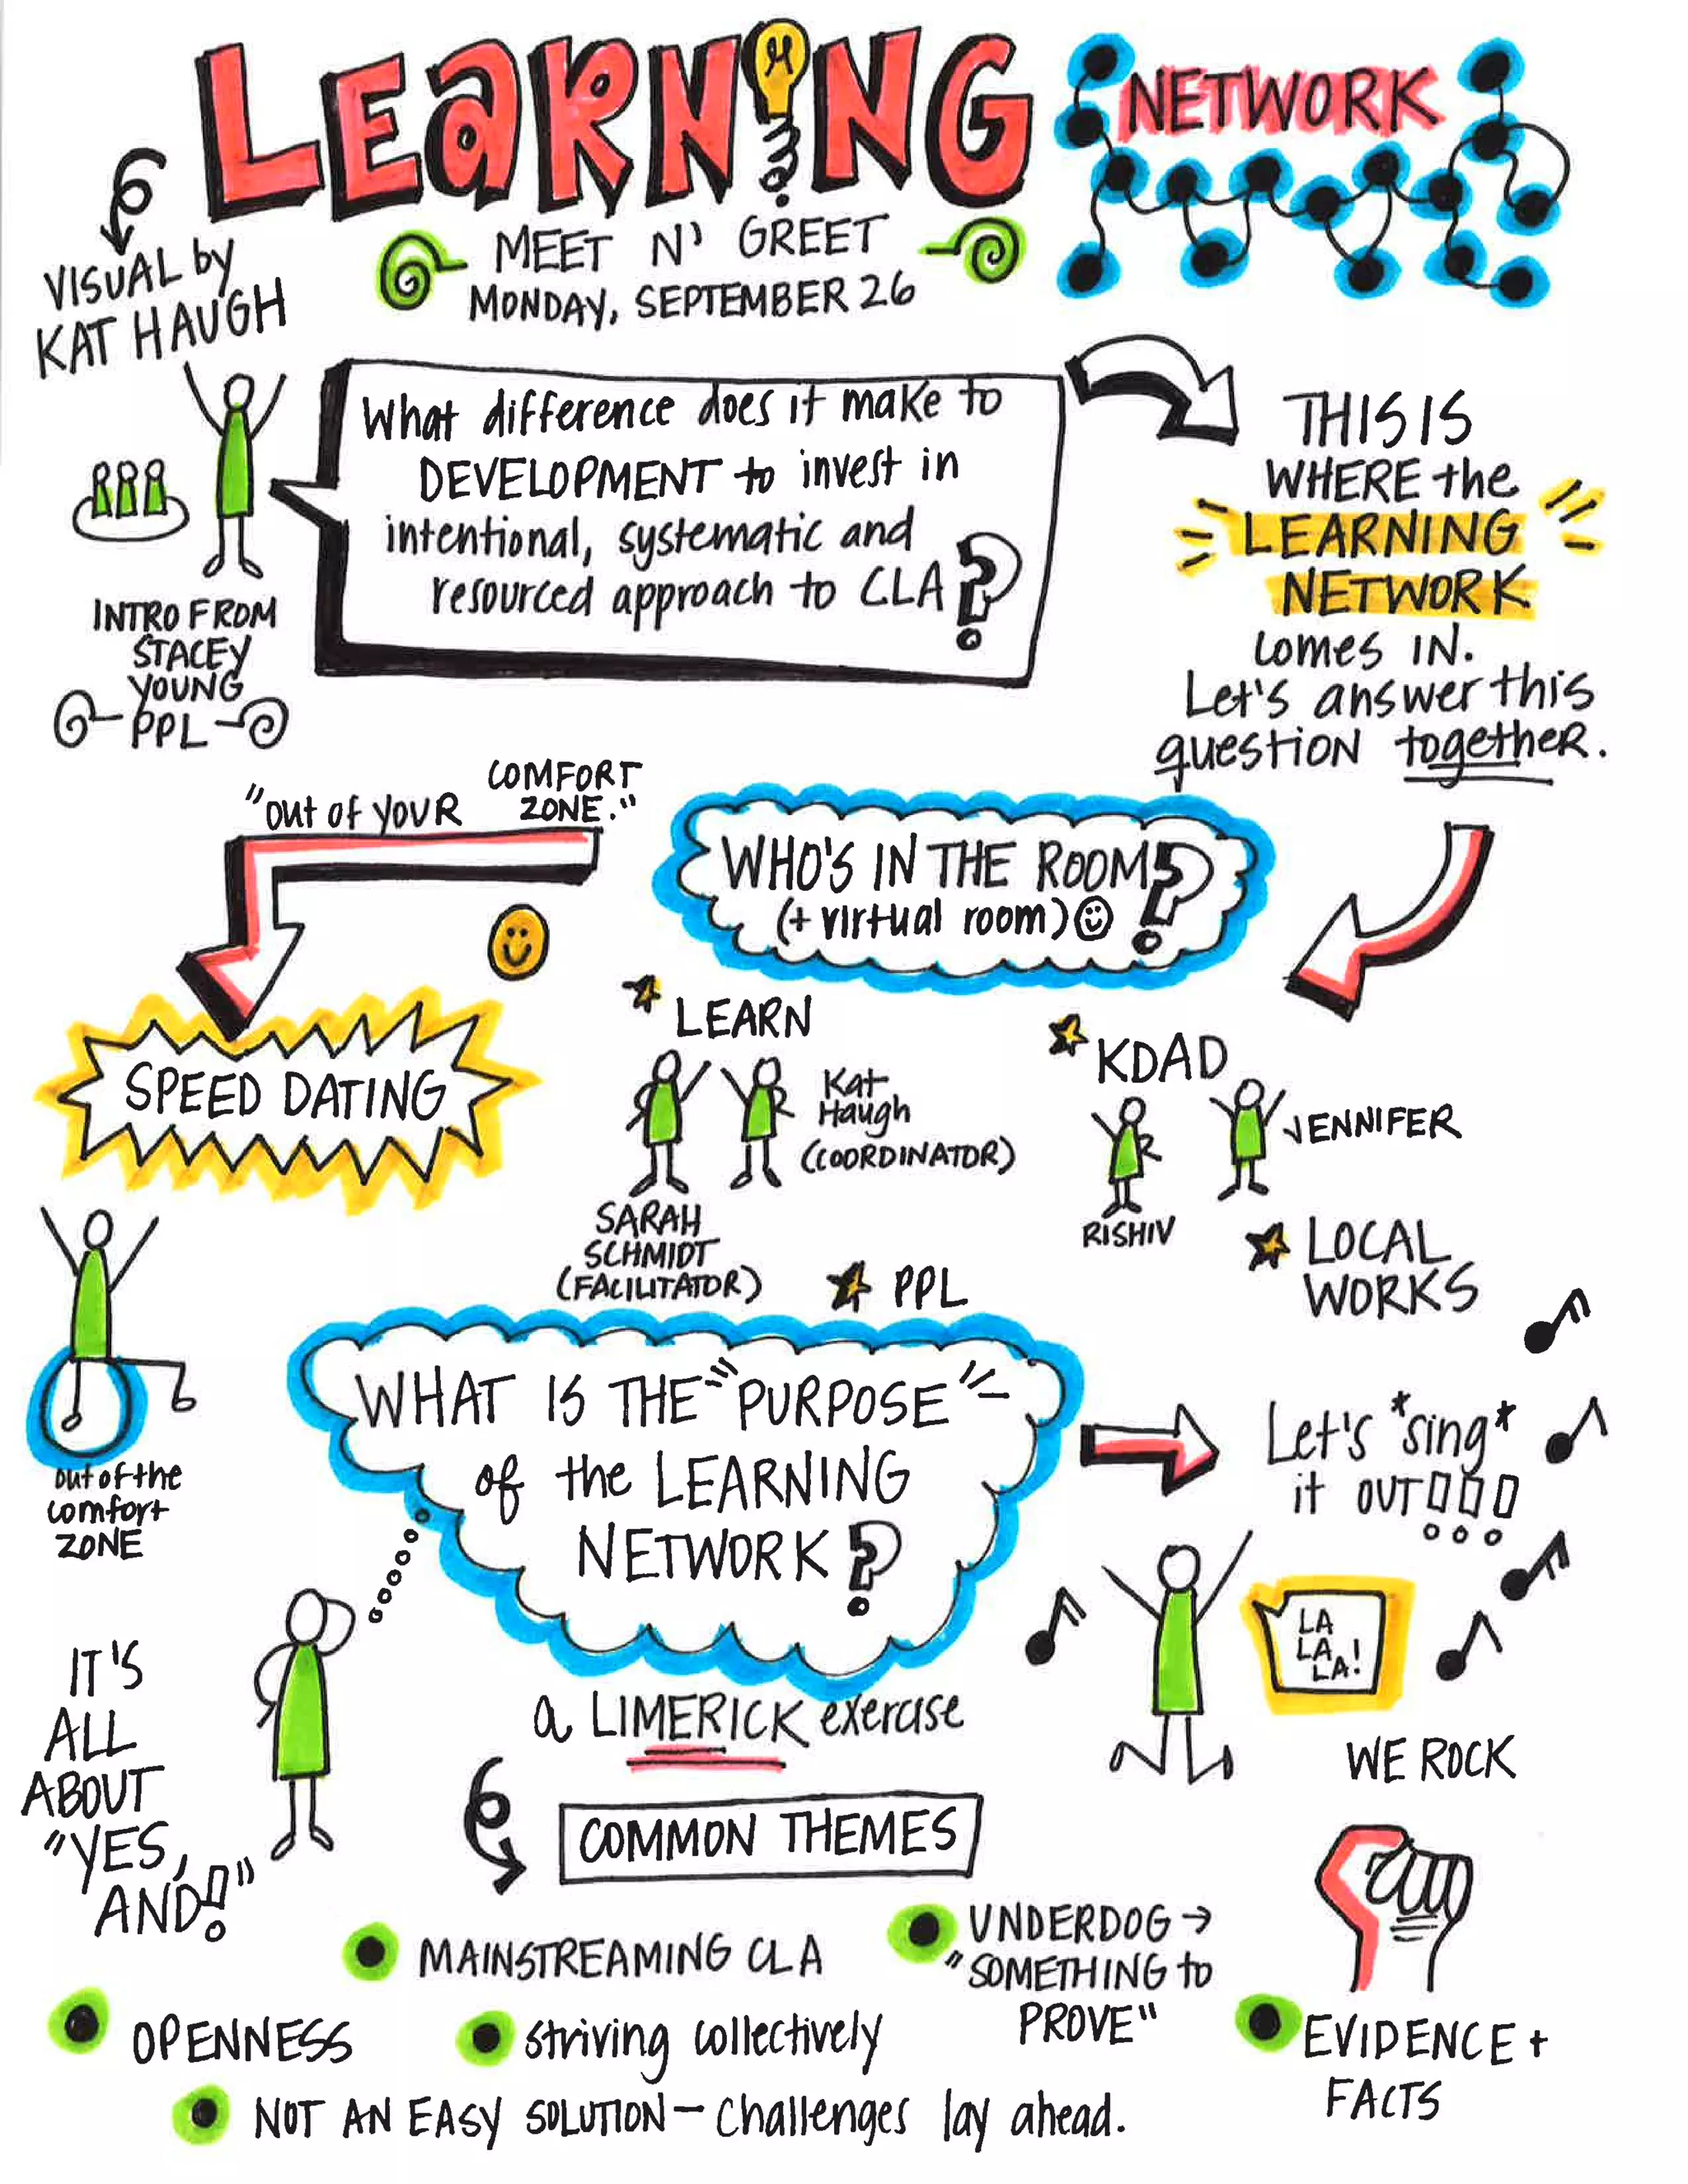 LEARNING
NETWORK
VISUAL by
KAT HAUGH
MEET N' GREET
MONDAY, SEPTEMBER 26
What difference does it make to
DEVELOPMENT to invest in
intentional, systematic and
resourced approach to CLA?
INTRO FROM
STACEY
YOUNG
PPL
THIS IS
WHERE the
LEARNING
NETWORK
comes IN.
Let's answer this
question together.
"out of YOUR COMFORT
ZONE."
SPEED DATING
out of the
comfort
ZONE
WHO'S IN THE ROOM?
(+ virtual room)
LEARN
Kat
Haugh
(COORDINATOR)
SARAH
SCHMIDT
(FACILITATOR)
KDAD
JENNIFER
RISHIV
PPL
LOCAL
WORKS
WHAT IS THE "PURPOSE"
of the LEARNING
NETWORK?
Let's *sing*
it OUT!!!
LA
LA
LA!
WE ROCK
IT'S
ALL
ABOUT
"YES,
AND!"
a LIMERICK exercise
COMMON THEMES
MAINSTREAMING CLA
UNDERDOG →
"SOMETHING to
PROVE"
OPENNESS
striving collectively
EVIDENCE +
FACTS
NOT AN EASY SOLUTION - challenges lay ahead.